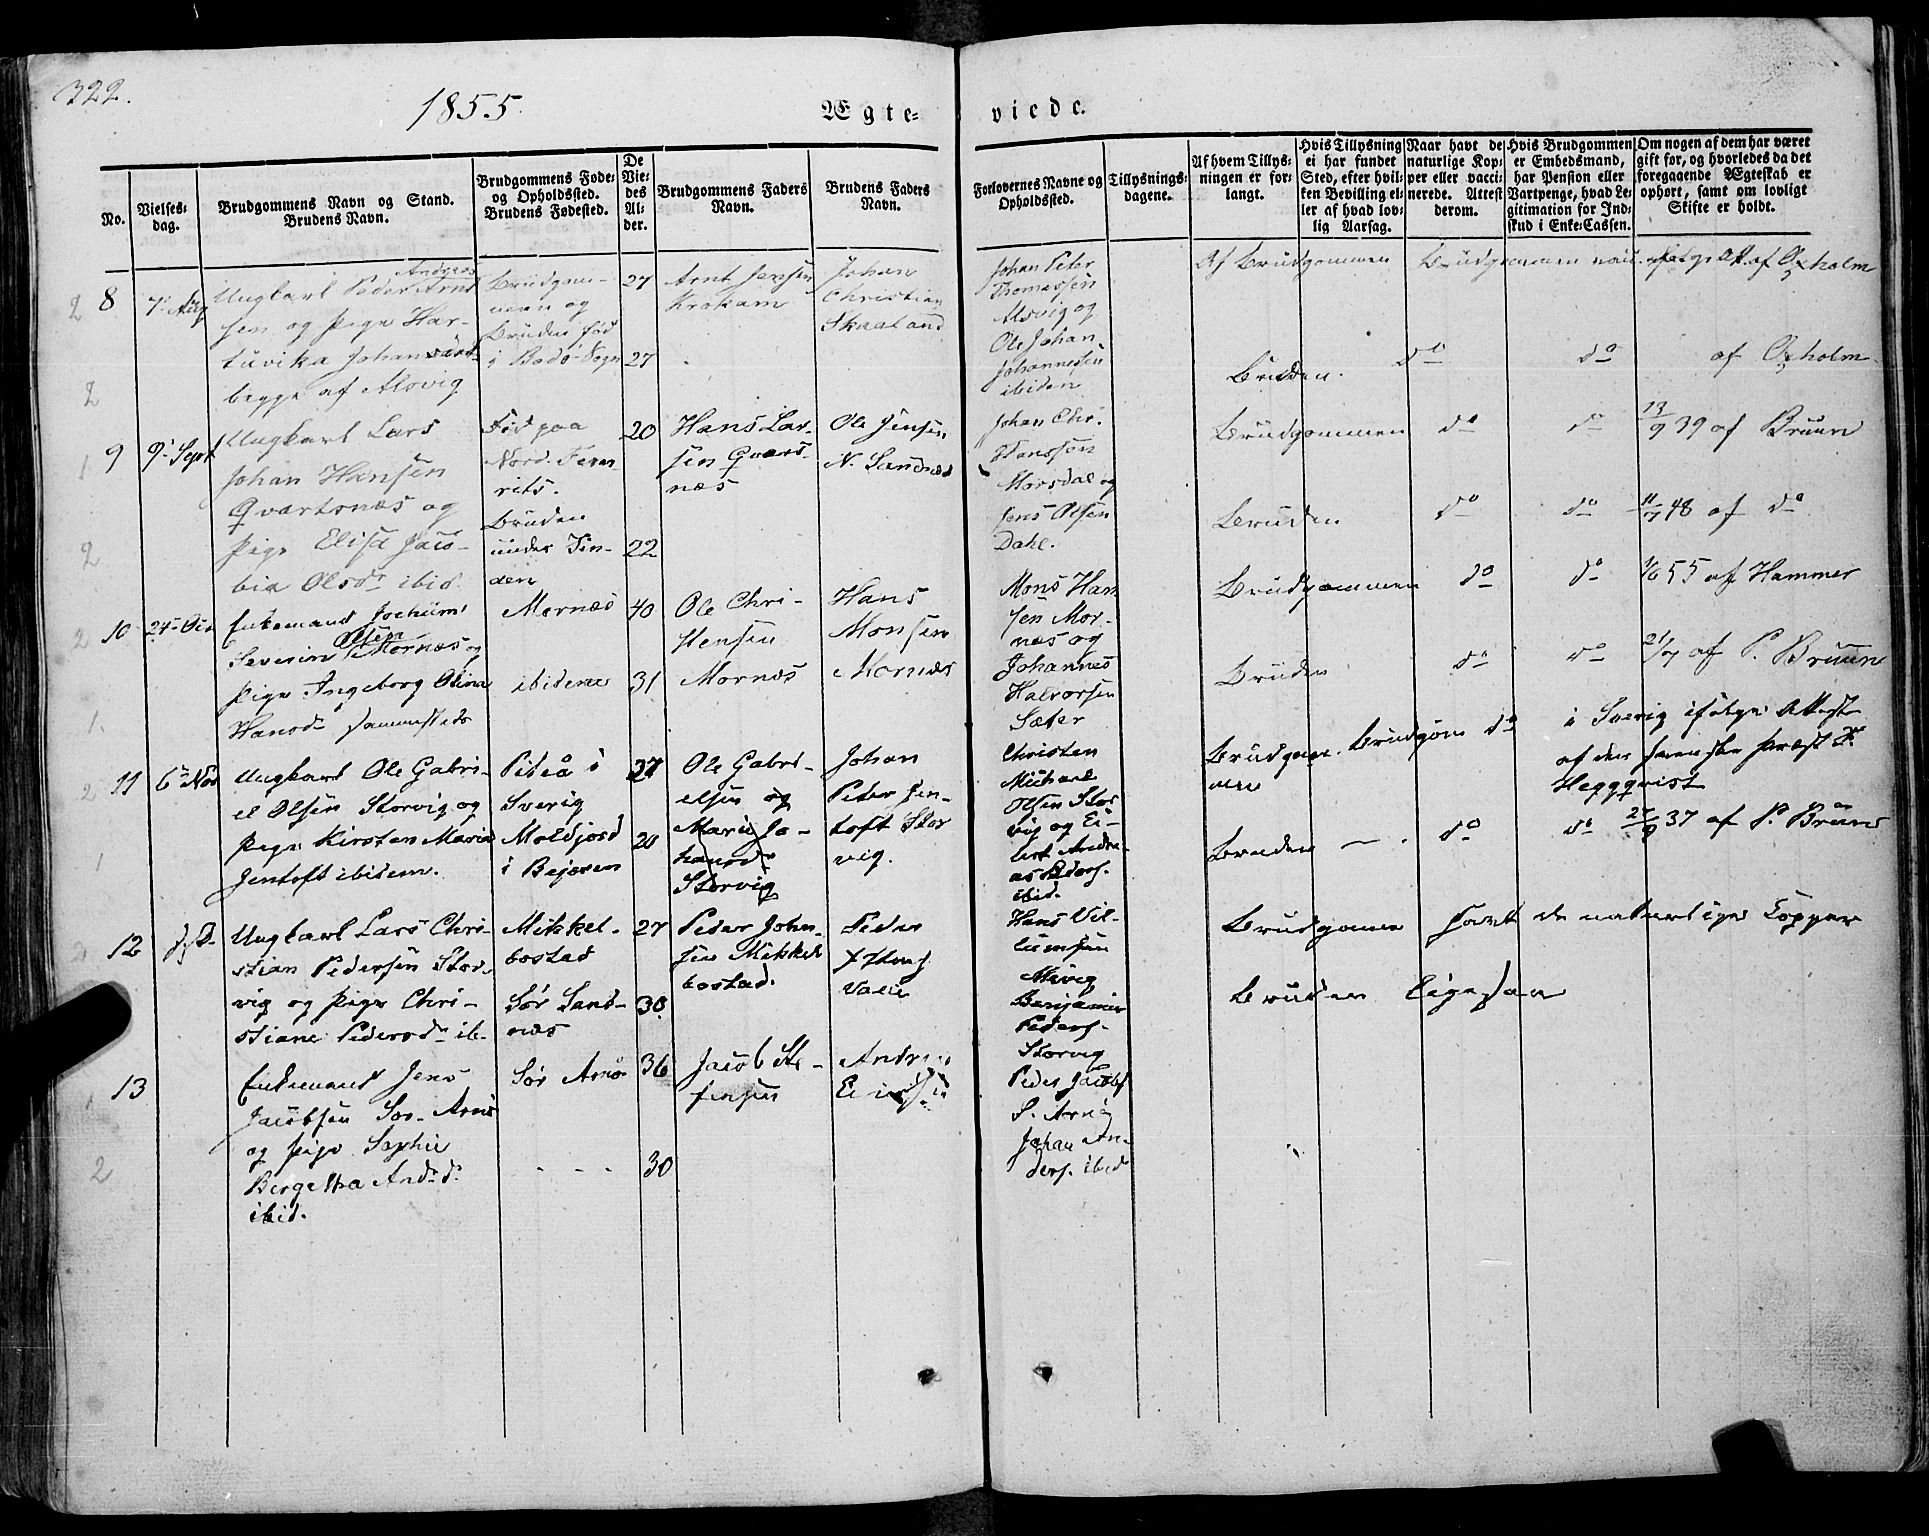 322.
1855.
Ægte= viede.
No.
Vielses=
dag.
Brudgommens Navn og Stand.
Brudens Navn.
Brudgommens Føde=
og Opholdssted.
Brudens Fødested.
De
Vie=
des
Al=
der.
Brudgommens Faders
Navn.
Brudens Faders
Navn.
Forlovernes Navne og
Opholdssted.
Tillysnings=
dagene.
Af hvem Tillys=
ningen er for=
langt.
Hvis Tillysning
ei har fundet
Sted, efter hvil=
ken Bevilling el=
ler af hvad lov=
lig Aarsag.
Naar havt de
naturlige Kop=
per eller vacci=
nerede. Attest
derom.
Hvis Brudgommen
er Embedsmand,
har Pension eller
Vartpenge, hvad Le=
gitimation for Ind=
skud i Enke=Cassen.
Om nogen af dem har været
gift før, og hvorledes da det
foregaaende Ægteskab er
ophørt, samt om lovligt
Skifte er holdt.
2
8
7 Aug
Andreas
Ungkarl Peder Arnt
sen og Pige Har-
tuvika Johansdat
begge af Alsvig
Brudgom-
men og
Bruden fød
i Bodø Sogn
27
27
Arnt Jensen
Krokam
Johan
Christian
Skaaland
Johan Peter
Thomassen
Alsvig og
Ole Johan
Johannesen
ibidem
Af Brudgommen
Brudgommen af Oxholm
2
Bruden. do do af Oxholm
1
9
9 Sept
Ungkarl Lars
Johan Hansen
Qvartsnæs og
Pige Elisa Jaco-
bia Olsdr ibid
Fød paa
Nord.
rits.
Bruden
under Tin-
den
20
22
Hans Lar-
sen Qvars-
næs
Ole Jensen
N. Sandnæs
Johan Chr.
Hanssen
Morsdal og
Jens Olsen
Dahl.
Brudgommen do do 13/9 39 af Bruun
2
Bruden do do 11/7 48 af do
2
10
24 Oct
Enkemand Jochum
Olsen
Severin Mornæs og
Pige Angeborg Olina
Hansdr sammesteds
Mornæs
ibidem
40
31
Ole Chri-
stensen
Mornæs
Hans
Monsen
Mornæs
Mons Han
sen Mor-
næs og
Johannes
Halvorsen
Sæter
Brudgommen do do 1/6 55 af Hammer
1.
Bruden do do 21/7 af P. Bruun
2
11
6 Nov
Ungkarl Ole Gabri-
el Olsen Storvig og
Pige Kirsten Maria
Jentoft ibidem.
Piteå i
Sverig
Moldjord
i Bejeren
27
20
Ole Gabri-
elsen og
Marie Jo-
hansdr
Storvig
Johan
Peter Jen-
toft Stor
vig.
Christen
Michael
Olsen Stor
vig og Ei-
lert Andre-
as Peders.
ibid.
Brudgom-
men
Brudgom do i Sverig ifølge Attest
af den svenske Præst
Heggqvist
1
Bruden — do do 27/9 37 af P. Bruun
2
12
d. D.
Ungkarl Lars Chri-
stian Pedersen Stor-
vig og Pige Chri-
stiane Pedersdr ib-
Mikkel-
bostad
Sør Sand-
næs
27
30
Peder John-
sen Mikkel
bostad.
Peder
Hans Vil-
lumsen
Alsvig
Benjamin
Peders-
Storvig
Brudgomen havt de naturlige Copper
Bruden Ligesaa
1
13
Enkemand Jens
Jacobsen Sør-Arnø
og Pige Sophie
Bergetha Andrd.
ibid.
Sør Arnø
- - -
36
30
Jacob Ste-
fensen
Andreas
Peder Jacobs
S. Arnø
Johan An-
ders. ibid
2